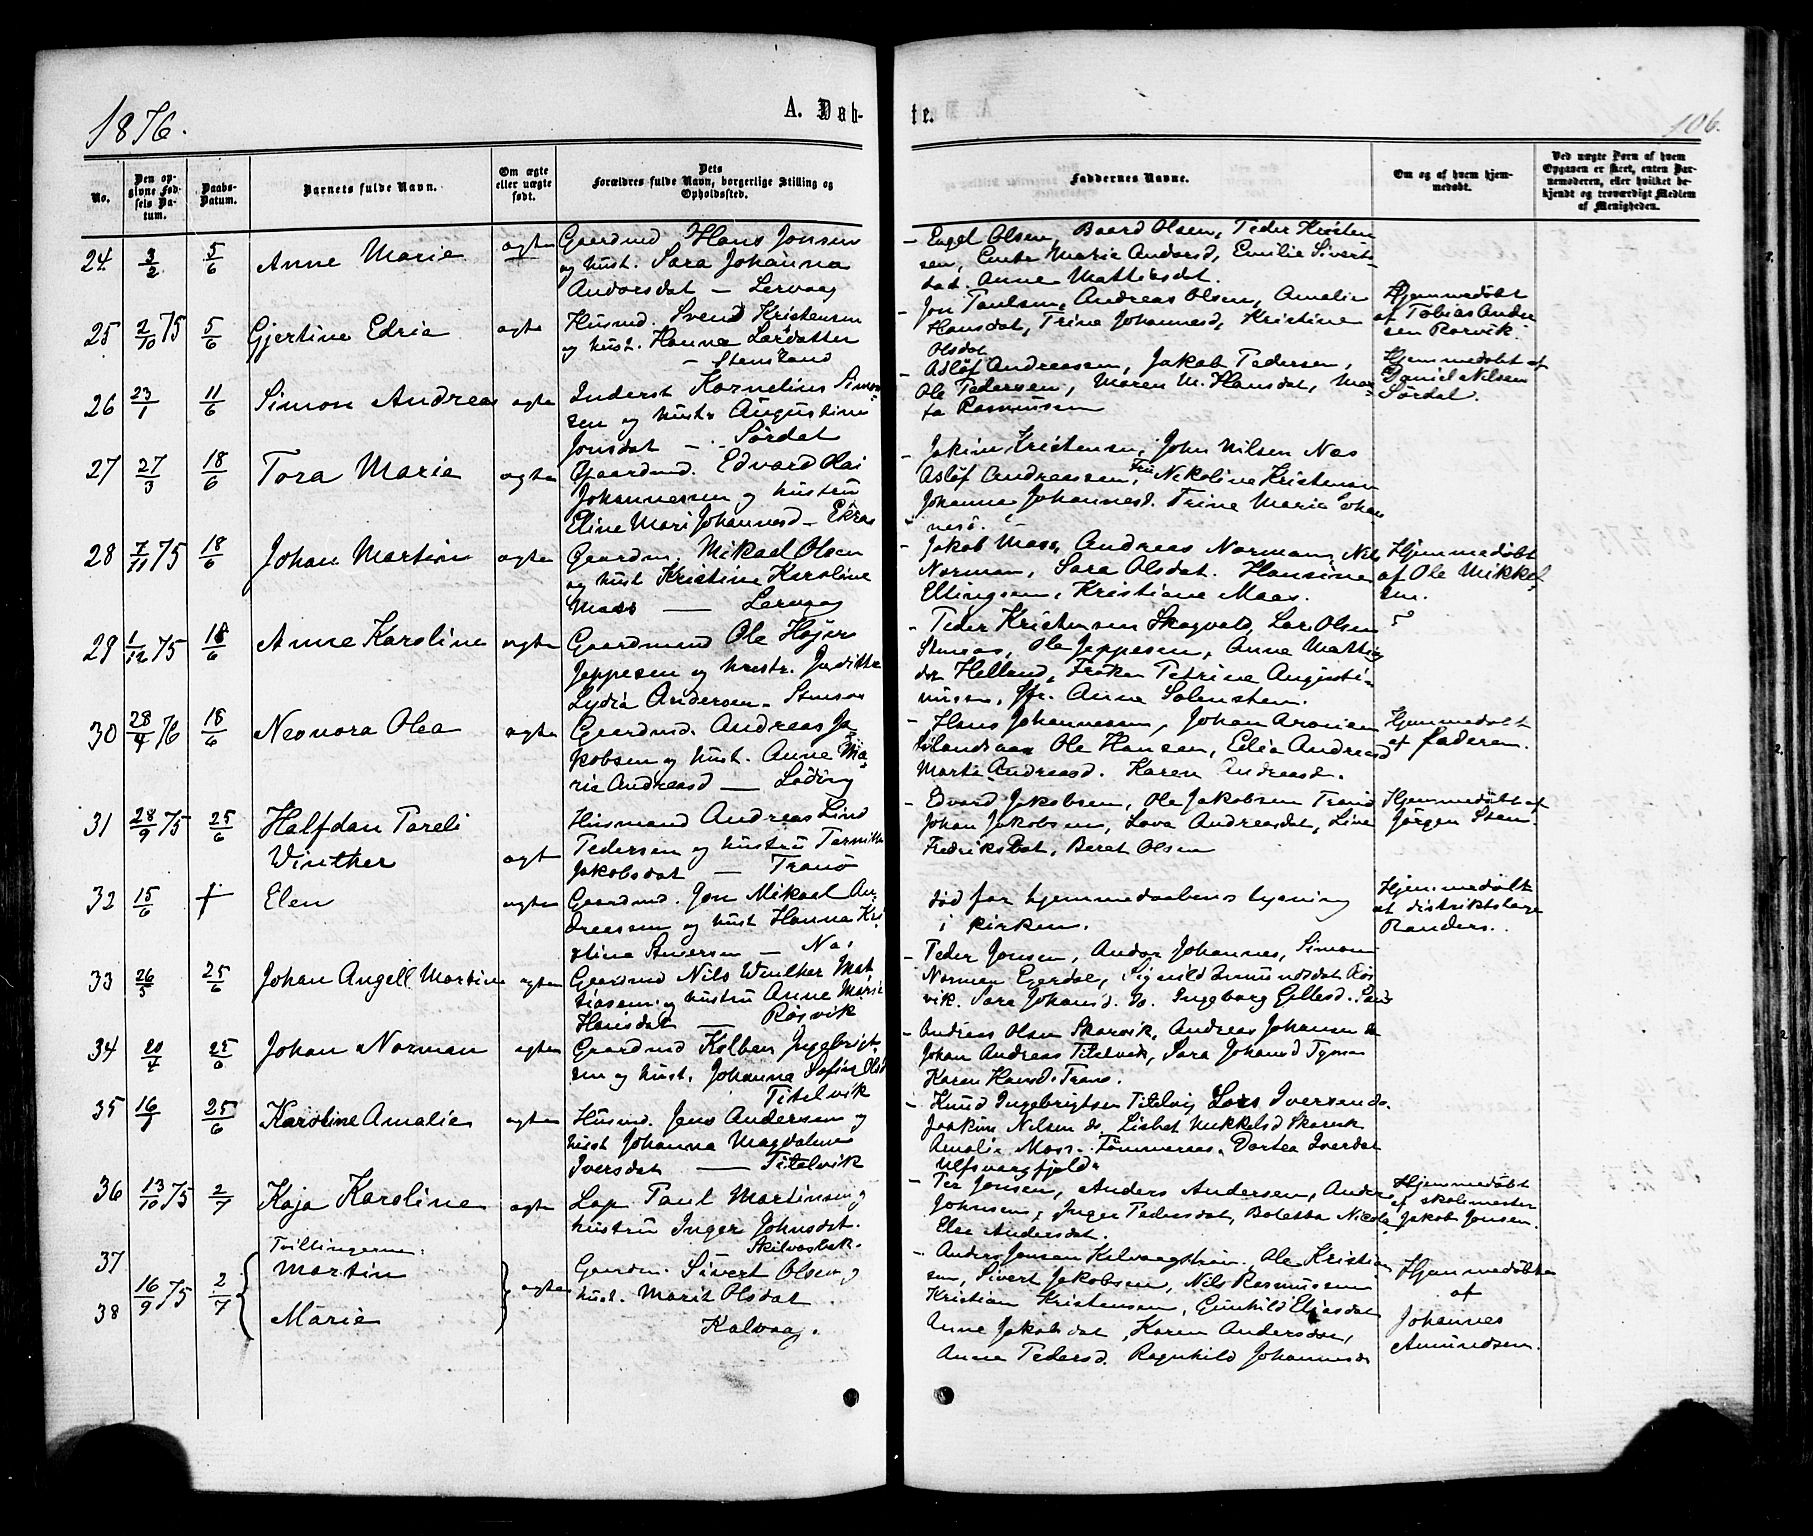 1876.
A. Døb-
No.
Den op-
givne Fød-
sels Da-
tum.
Daabs-
Datum.
Barnets fulde Navn.
Om ægte
eller uægte
født.
Dets
Forældres fulde Navn, borgerlige Stilling og
Opholdssted.
24 3/2 5/6 Anne Marie ægte
Gaardmd Hans Jonsen
og hust. Sara Johanna
Andorsdat – Lervaag
25 2/10 75 5/6 Gjertine Edria ægte
Husmd. Svend Kristensen
og hust. Hanna Larsdatter
– Stensland
26 23/1 11/6 Simon Andreas ægte
Inderst Kornelius Simon-
sen og hust. Augustine
Jonsdat – Sørdal
27 27/3 18/6 Tora Marie ægte
Gaardmd. Edvard Kai
Johannessen og hustru
Eline Mari Johannesd –
28 7/11 75 18/6 Johan Martin ægte
Gaardm. Mikael Olsen
og hust Kristine Karoline
Maas – Lervaag
29 1/12 75 18/6 Anne Karoline ægte
Gaardmand Ole Højer
Jeppesen og hustr. Judithe
Lydia Andersen –
30 28/4 76 18/6 Neonora Olea ægte
Gaardmd. Andreas Ja-
kobsen og hust. Anne Ma-
rie Andreasd – Løding
31 28/9 75 25/6 Halfdan Pareli
Vinther ægt
Husmand Andreas Lind
Pedersen og hustru
Jakobsdat – Tranø
32 15/6 † Elen ægten
Gaardmd. Jon Mikael An-
dreasen og hust Hanna Kri-
stine Siversen –
33 26/5 25/6 Johan Angell Martin ægten
Gaardmd Nils Winther Mat-
tiasen og hustru Anne Marie
Hansdat – Røsvik
34 20/4 25/6 Johan Norman ægten
Gaardmd Kolben Ingebrigt-
sen og hust. Johanna Sofie Olsd
Titelvik
35 16/ 25/6 Karoline Amalie ægten
Husmd. Jens Andersen og
hust Johanna Magdalena
Iversdat – Titelvik
36 13/10 75 2/7 Kaja Karoline ægte
Lap Paul Martinsen og
hustru Inger Johnsdat.
37 Tvillingerne:
Martin
16/9 75 2/7 ægten
38 Marie
Gaardm. Sivert Olsen og
hust. Marit Olsdat
Kalvaag.
te.
106.
Faddernes Navne.
Om og af hvem hjem-
medøbt.
Ved uægte Børn af hvem
Opgaven er skeet, enten Bar-
nemoderen, eller hvilket be-
kjendt og troværdigt Medlem
af Menigheden.
– Engel Olsen, Baard Olsen, Peder Kristen-
sen, Marie Andorsd, Emilie Siverts-
dat. Anne Mattisdat.
– Jon Paulsen, Andreas Olsen, Amalie
Hansdat, Trine Johannesd, Kristine
Olsdat
Hjemmedøbt
af Tobias Andre-
sen Rørvik.
– Asløf Andreassen, Jakob Pedersen,
Ole Pedersen, Maren M. Hansdat,
Rasmussen
Hjemmedøbt af
Daniel Nilsen
Sørdal.
– Jakim Kristensen, John Nilsen Næs
Asløf Andreassen, Fru Nikoline Kristensen
Johanna Johannesd. Trine Marie
– Jakob Maas, Andreas Norman, Nils
Norman, Sara Olsdat. Hansine
Ellingsen, Kristiane Maas.
Hjemmedøbt
af Ole Mikkel-
sen.
– Peder Kristensen Skogvold, Lar Olsen
Ole Jeppesen, Anne Mattis
dr Helland, Frøken Petrine Augusti-
nussen, Anne Solensten.
– Hans Johannessen, Johan
Ole Hansen, Edia Andreasd
Marte Andreasd. Karen Andreasd.
Hjemmedøbt
af faderen.
– Edvard Jakobsen, Ole Jakobsen Tranø
Johan Jakobsen, Lova Andreasdat, Line
Fredriksdat, Beret Olsen
Hjemmedøbt af
Jørgen Sten
død før hjemmedaabens lysning
i kirken.
Hjemmedøbt
af distriktslæge
Randers.
– Peder Jonsen, Andor Johannes, Simon
Norman Egerdal, Signild Amundsdat Røs-
vik. Sara Johansd. do. Ingeborg Gellesd.
– Andreas Olsen Skarvik, Andreas Johansen do
Johan Andreas Titelvik, Sara Johansd
Karen Hansd. Tranø.
– Knud Ingebrigtsen Titelvig Lars Iversen do.
Joakim Nilsen do Lisbet Mikkelsd Skarvik
Amalie Maas. Tømmeraas. Dortea Iversdat
Ulfsvaagfjeld.
– Per Jonsen, Anders Andersen, Anders
Johnsen, Inger Pedersdat, Boletta
Else Andersdat.
Hjemmedøbt
af skolemester
Jakob Jonsen.
– Anders Jonsen Kalvaag Ole Kristian-
sen, Sivert Jakobsen, Nils Rasmussen
Kristian Kristensen, Gunhild Eliasdat
Anne Jakobsdat, Karen Andersdat,
Anne Pedersd. Ragnhild Johannesd.
Hjemmedøbte
af
Johannes
Amundsen.